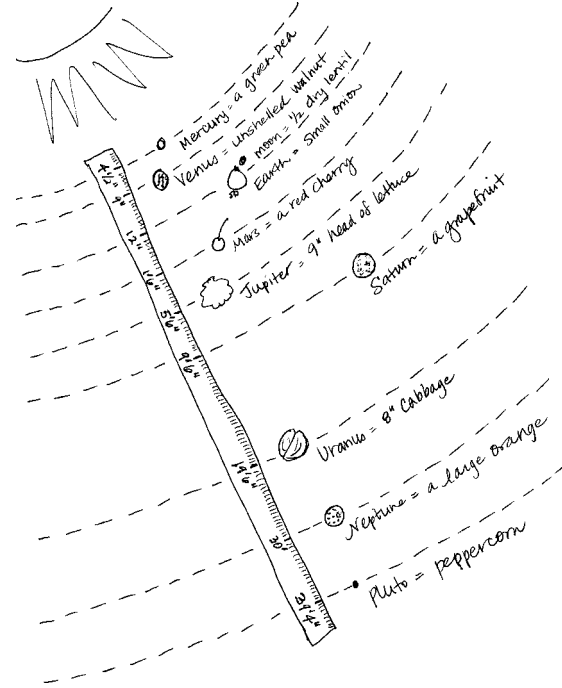 Mercury = a green pea
Venus = unshelled walnut
moon = 1/2 dry lentil
Earth = Small onion
Mars = a red cherry
Jupiter = 9" head of lettuce
Saturn = a grapefruit
Uranus = 8" Cabbage
Neptune = a large orange
Pluto = peppercorn
4 1/2"
9"
12"
1'6"
5'6"
9'6"
19'6"
30'
39'4"